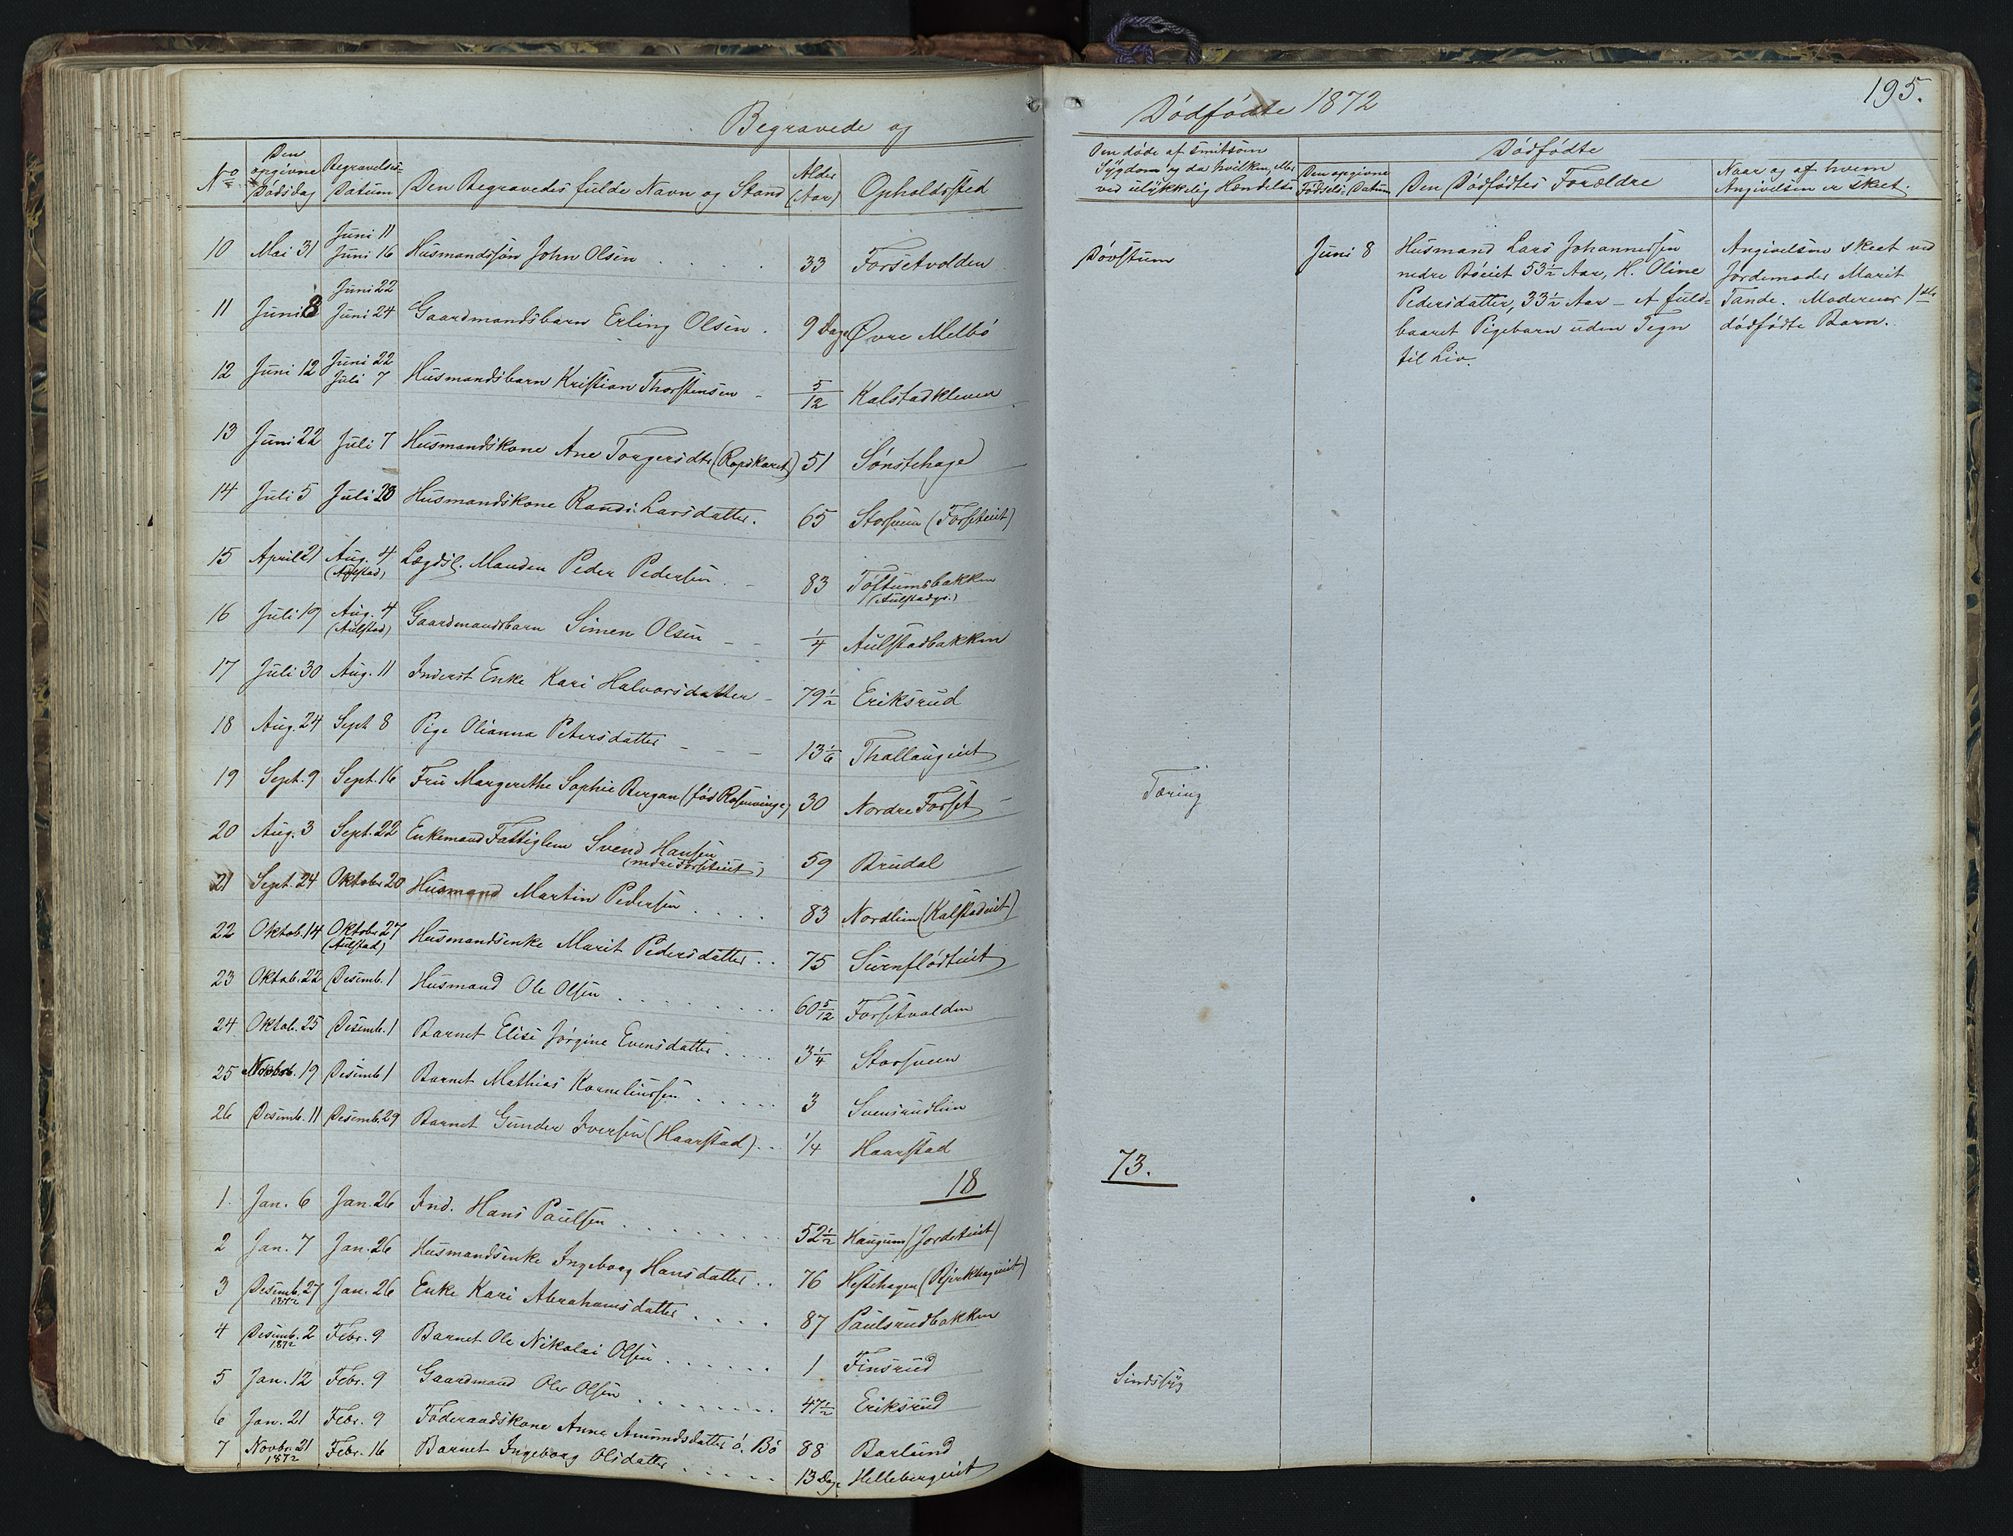 Begravede og
No
Den opgivne Dødsdag
Begravelses-Datum
Den Begravedes fulde Navn og Stand
Alder (Aar)
Opholdssted
10 Mai 31 Juni 11 Juni 16 Husmandssøn John Olsen 33 Forsetvolden
11 Juni 8 Juni 22 Juni 24 Gaardmandsbarn Erling Olsen 9 Dage Øvre Melbö
12 Juni 12 Juni 22 Juli 7 Husmandsbarn Kristian Thorstensen 5/12 Kalstadkleven
13 Juni 22 Juli 7 Husmandskone Ane Torgersdtr (Ropskaret) 51 Sønstehage
14 Juli 5 Juli 20 Husmandskone Randi Larsdatter. 65 Storsveen (Forseteiet)
15 April 21 Aug. 4 (Aulstad) Lægdsl. Manden Peder Pedersen 83 Toftumsbakken (Aulstadgr.)
16 Juli 19 Aug. 4 (Aulstad) Gaardmandsbarn Simen Olsen 1/4 Aulstadbakken
17 Juli 30 Aug. 11 Inderst Enke Kari Halvorsdatter 79 1/2 Eriksrud
18 Aug. 24 Sept 8 Pige Olianna Petersdatter 13 1/6 Thallaugeiet
19 Sept. 9 Sept. 16 Fru Margerethe Sophie Bergan (fød Rosenvinge) 30 Nordre Forset
20 Aug. 3 Sept. 22 Enkemand Fattiglem Svend Hansen (nedre Forseteiet) 59 Brudal
21 Sept. 24 Oktober 20 Husmand Martin Pedersen 83 Nordlien (Kalstadeiet)
22 Oktob. 14 Oktober 27 (Aulstad) Husmandsenke Marit Pedersdatter 75 Surnflödteiet
23 Oktob. 22 Desemb. 1 Husmand Ole Olsen 60 5/12 Forsetvolden
24 Oktob. 25 Desemb. 1 Barnet Elise Jørgine Evensdatter 3 1/4 Storsveen
25 Novbr. 19 Desemb. 1 Barnet Mathias Korneliussen 3 Svensrudlien
26 Desemb. 11 Desemb. 29 Barnet Gunder Iversen (Haarstad) 1/4 Haarstad
18
1. Jan. 6 Jan. 26 Ind. Hans Paulsen 52 1/2 Haugum (Jordeteiet)
2 Jan. 7 Jan. 26 Husmandsenke Ingeborg Hansdatter 76 Hestehagen (Björkhageeiet)
3 Desemb. 27 1872 Jan. 26 Enke Kari Abrahamsdatter 87 Paulsrudbakken
4 Desemb. 2 1872 Febr. 9 Barnet Ole Nikolai Olsen 1 Finsrud
5 Jan. 12 Febr. 9 Gaardmand Ole Olsen 47 1/2 Eriksrud
6 Jan. 21 Febr. 9 Føderaadskone Anne Amundsdatter ö. Bö 88 Barlund
7 Novbr. 21 1872 Febr. 16 Barnet Ingeborg Olsdatter 13 Dage Hellebergeiet
195.
Dødfødte 1872
Om døde af smitsom
Sygdom og da hvilken, eller
ved ulykkelig Hændelse
Dødfødte
Den opgivne Fødsels-Datum
Den Dødfødtes Forældre
Naar og af hvem
Angivelsen er skeet.
Døvstum
Juni 8
Husmand Lars Johannessen
nedre Bøeiet 53 1/2 Aar, H. Oline
Pedersdatter, 33 1/2 Aar – et fuld-
baaret Pigebarn uden Tegn
til Liv.
Angivelsen skeet ved
Jordemoder Marit
Tande. Moderens 1ste
dødfødte Barn.
Tæring
73.
Sindssyg